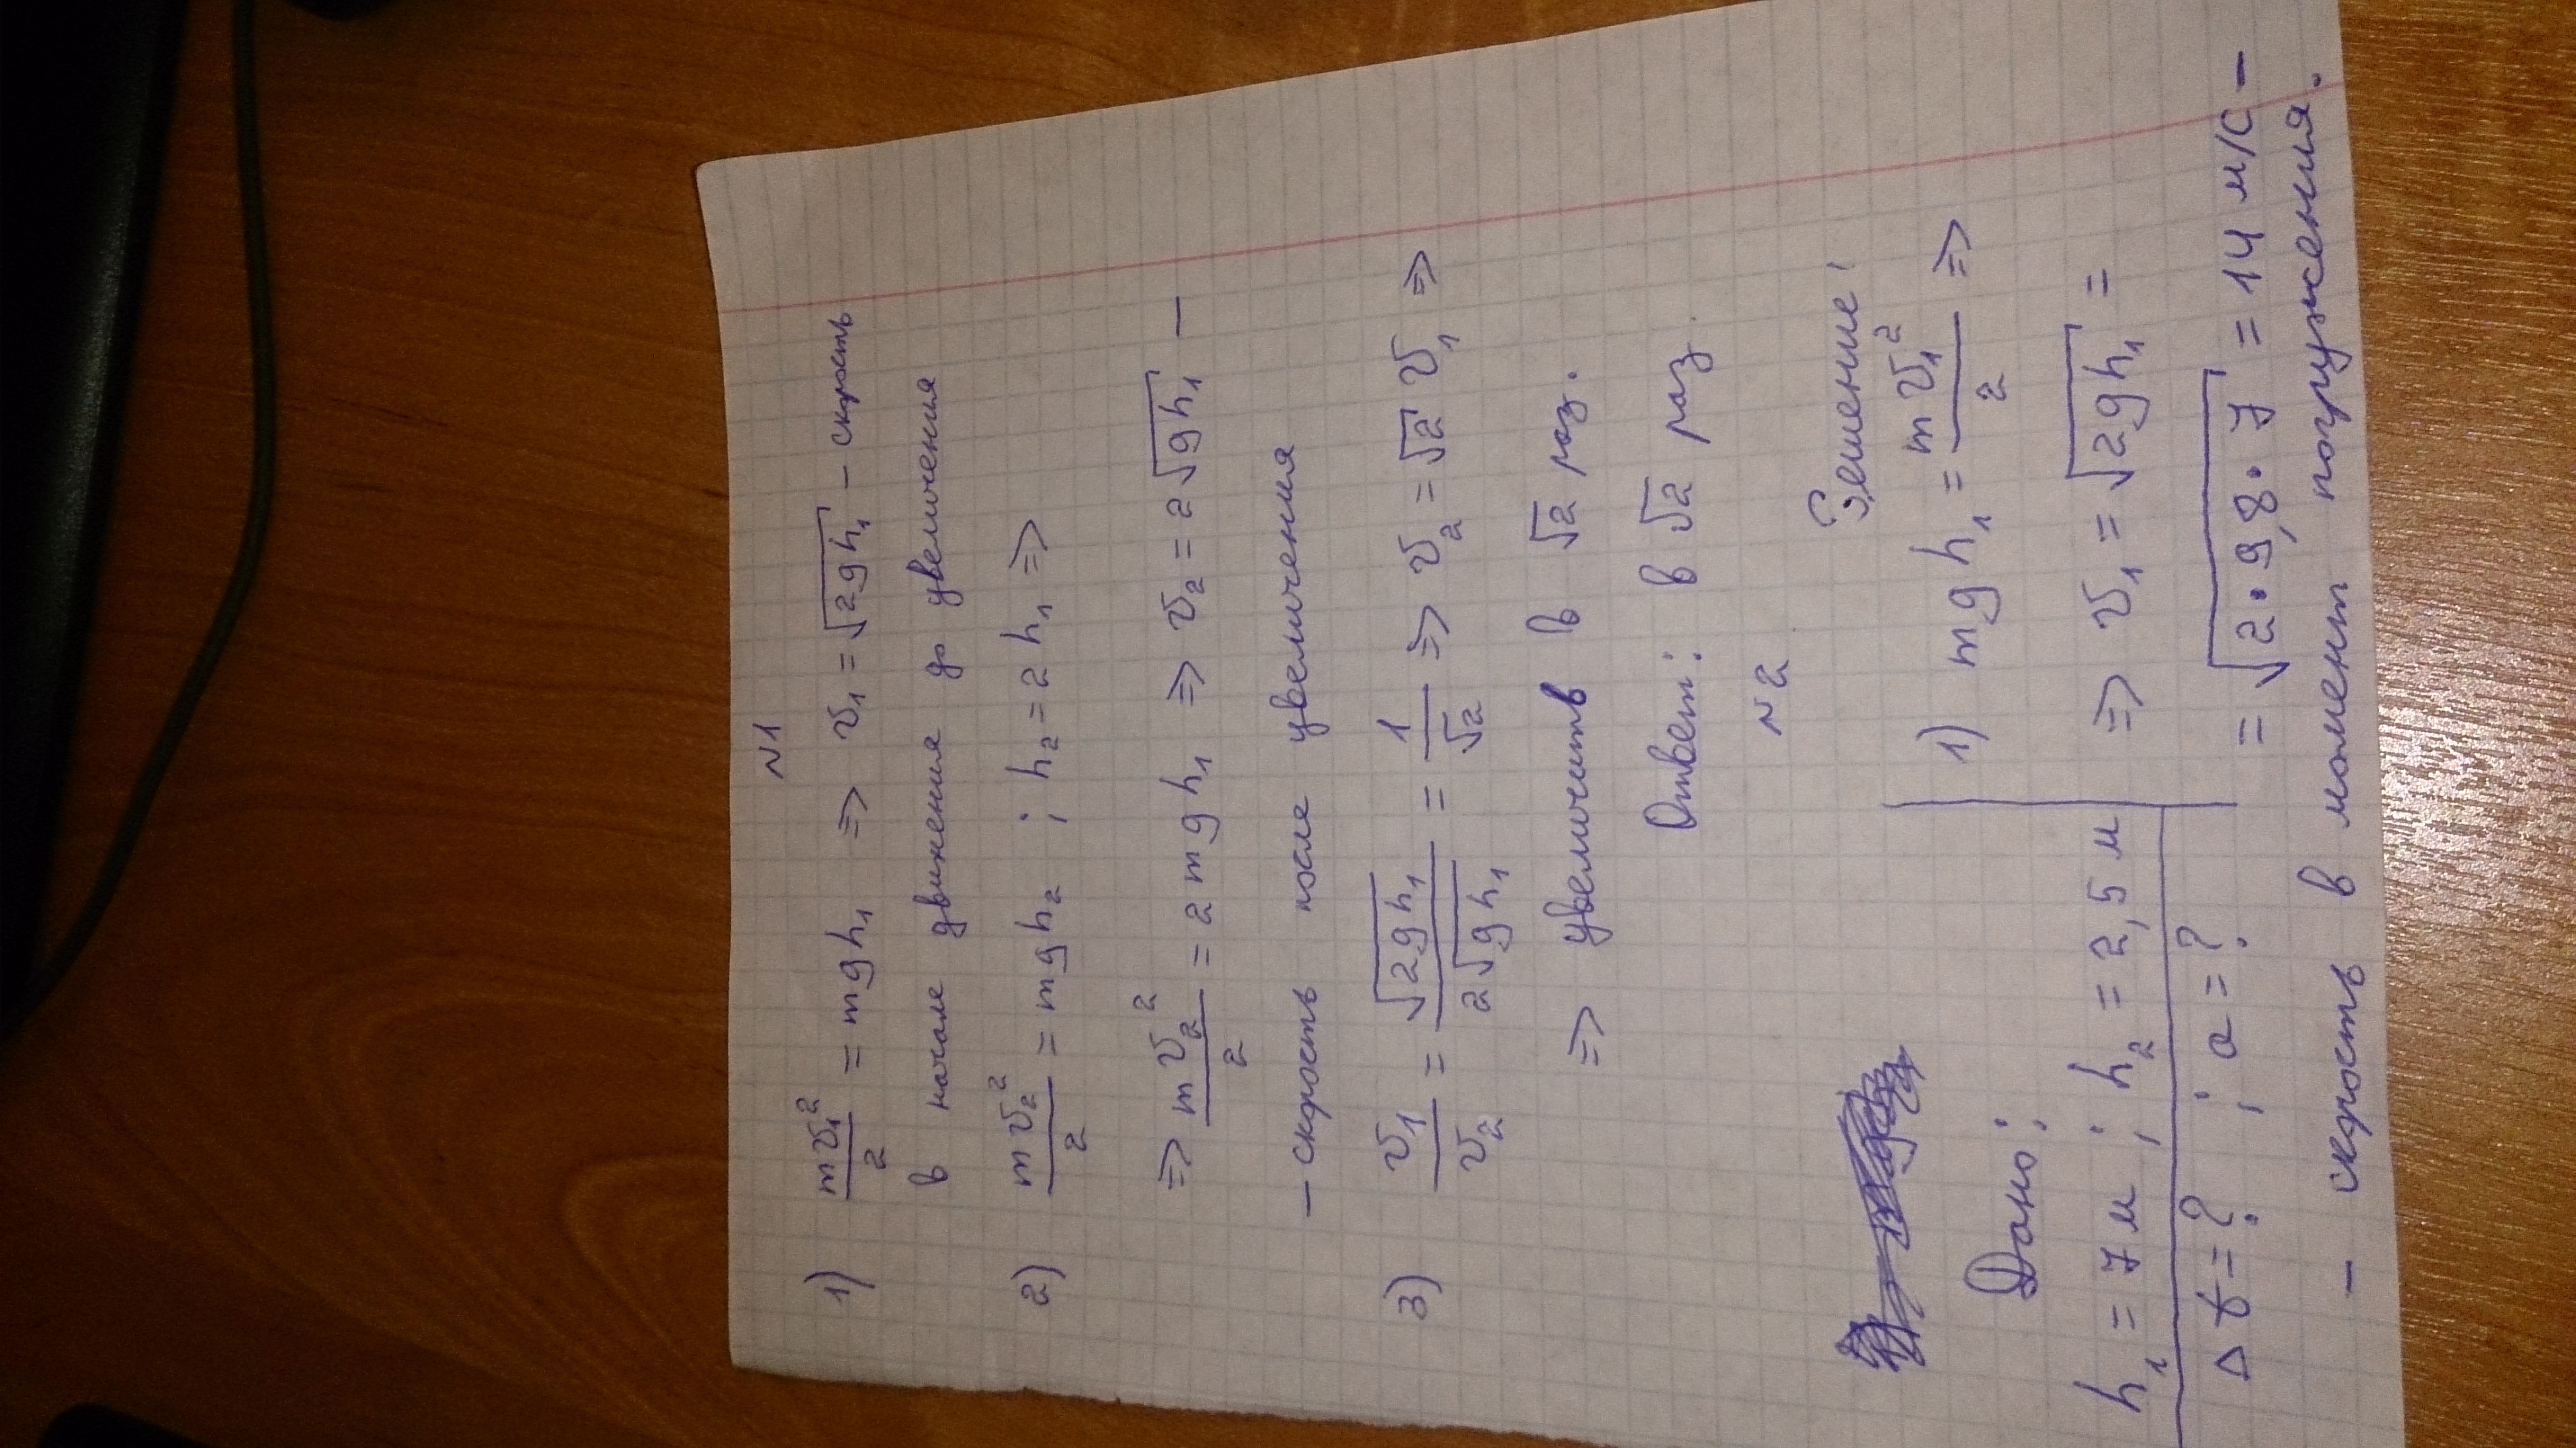 N1
1) mv₁²/2 = mgh₁ => v₁ = √(2gh₁) – скорость
в начале движения до увеличения
2) mv₂²/2 = mgh₂ ; h₂ = 2h₁ =>
=> mv₂²/2 = 2mgh₁ => v₂ = 2√(gh₁) –
– скорость после увеличения
3) v₁/v₂ = √(2gh₁)/2√(gh₁) = 1/√2 => v₂ = √2 v₁ =>
=> увеличить в √2 раз.
Ответ: в √2 раз
N2
Дано:
h₁ = 7 м ; h₂ = 2,5 м
Δt = ? ; a = ?
Решение:
1) mgh₁ = mv₁²/2 =>
=> v₁ = √(2gh₁) =
= √(2·9,8·7) = 14 м/с –
– скорость в момент погружения.